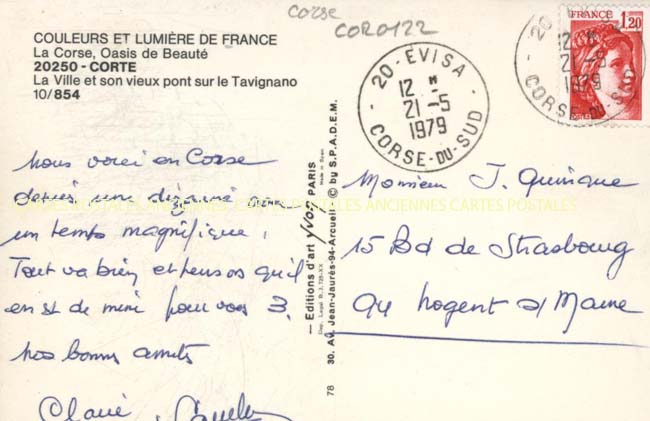 Corse
COR0122
COULEURS ET LUMIÈRE DE FRANCE
La Corse, Oasis de Beauté
20250 - CORTE
La Ville et son vieux pont sur le Tavignano
10/854
20 - EVISA
12 H
21 - 5
1979
CORSE-DU-SUD
1,20
nous voici en Corse
depuis une
un temps magnifique.
Tout va bien et pensons qu'il
en est de même pour vous 3.
nos bonnes amitiés
Claire
Monsieur J.
15 Bd de Strasbourg
94 Nogent s/ Marne
— Editions d'art yvon, PARIS
30, Av. Jean-Jaurès-94-Arcueil © by S.P.A.D.E.M.
78
CARTES POSTALES ANCIENNES CARTES POSTALES